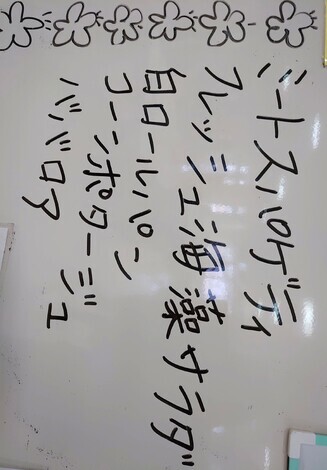 ミートスパゲティ
フレッシュ海藻サラダ
白ロールパン
コーンポタージュ
ババロア